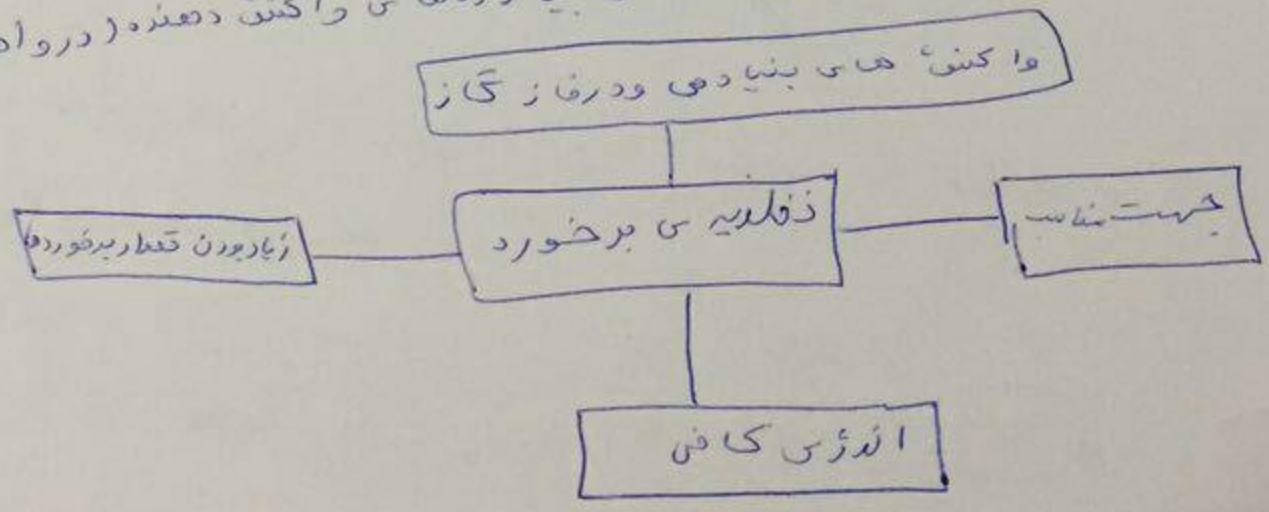 واکنش دهنده (در واقع
واکنش های بنیادی و در فاز گاز
نظریه ی برخورد
جهت مناسب
زیاد بودن تعداد برخوردها
انرژی کافی